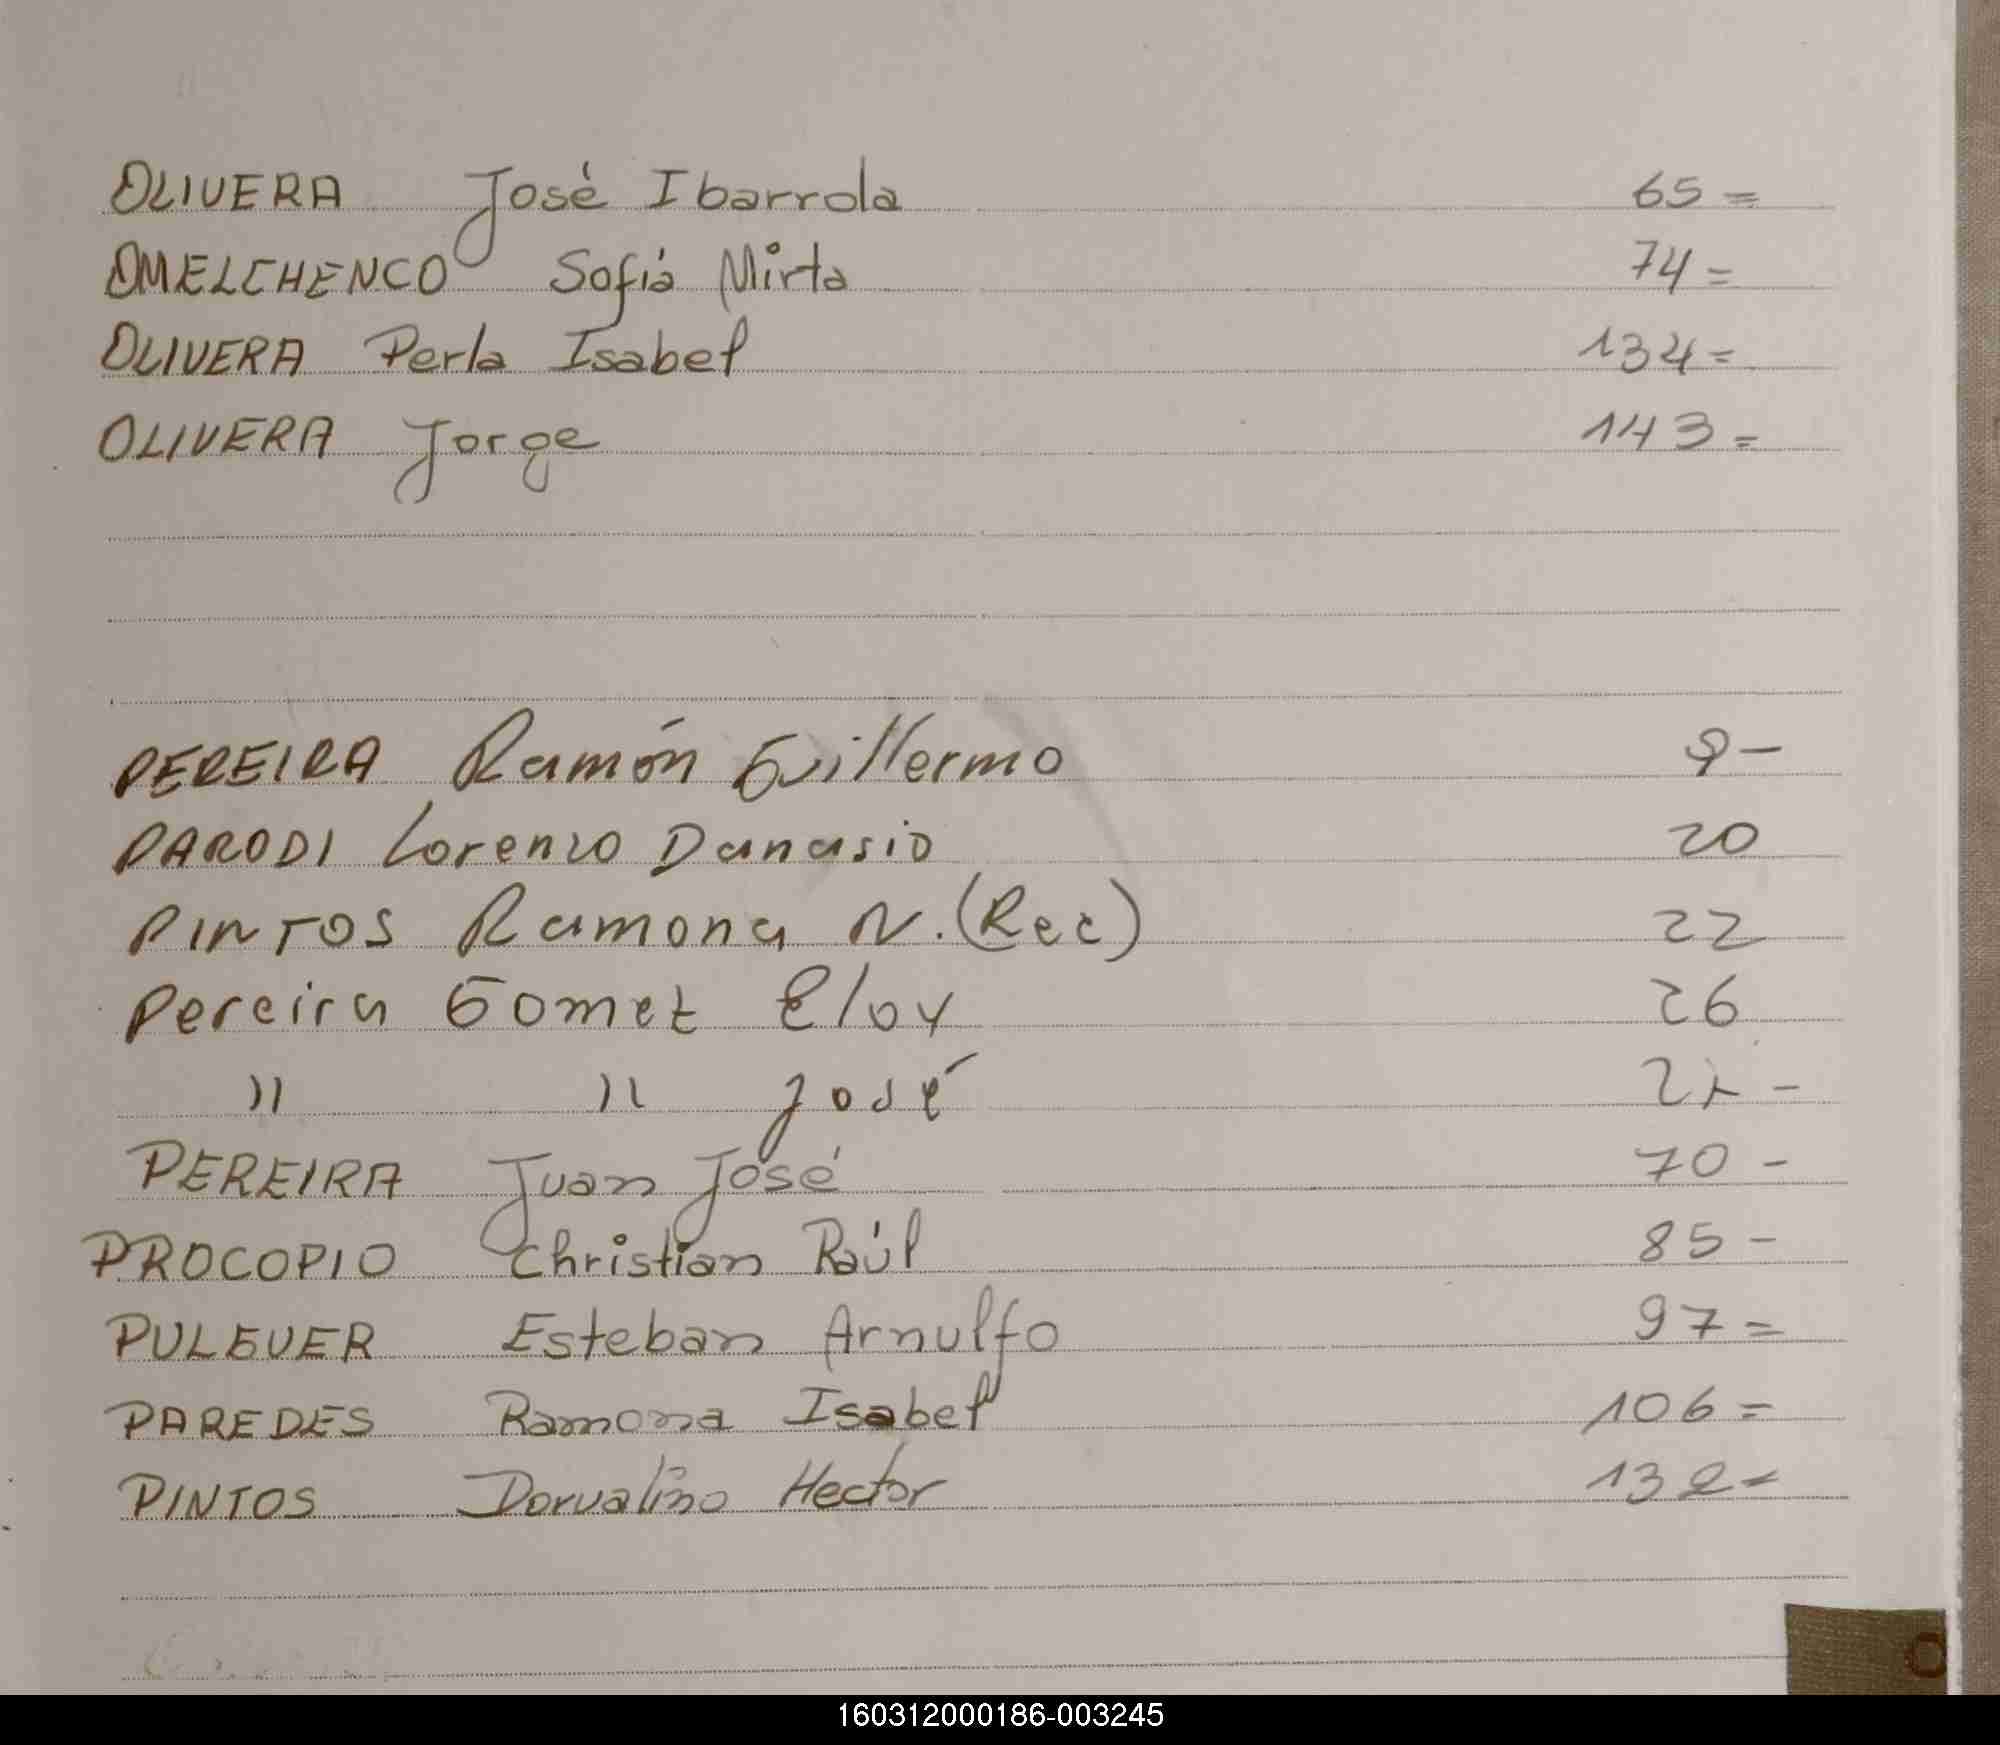 OLIVERA José Ibarrola 65=
OMELCHENCO Sofía Mirta 74=
OLIVERA Perla Isabel 134=
OLIVERA Jorge 143=
PEREIRA Ramón Guillermo 9-
PARODI Lorenzo Danasio 20
PINTOS Ramona N. (Rec) 22
Pereira Gomez Eloy 26
" " José 27-
PEREIRA Juan José 70-
PROCOPIO Christian Raúl 85-
PULGUER Esteban Arnulfo 97=
PAREDES Ramona Isabel 106=
PINTOS Dorvalino Hector 132=
O
160312000186-003245